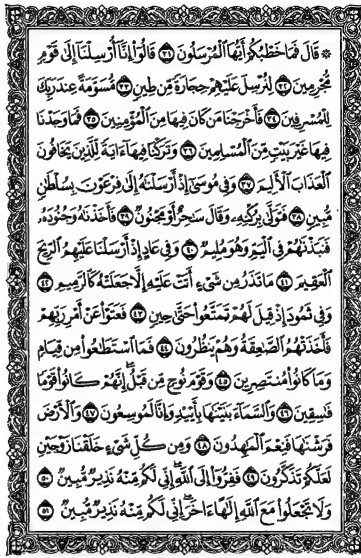 ۞ قَالَ فَمَا خَطْبُكُمْ أَيُّهَا الْمُرْسَلُونَ ٣١ قَالُوا إِنَّا أُرْسِلْنَا إِلَىٰ قَوْمٍ
مُّجْرِمِينَ ٣٢ لِنُرْسِلَ عَلَيْهِمْ حِجَارَةً مِّن طِينٍ ٣٣ مُّسَوَّمَةً عِندَ رَبِّكَ
لِلْمُسْرِفِينَ ٣٤ فَأَخْرَجْنَا مَن كَانَ فِيهَا مِنَ الْمُؤْمِنِينَ ٣٥ فَمَا وَجَدْنَا
فِيهَا غَيْرَ بَيْتٍ مِّنَ الْمُسْلِمِينَ ٣٦ وَتَرَكْنَا فِيهَا ءَايَةً لِّلَّذِينَ يَخَافُونَ
الْعَذَابَ الْأَلِيمَ ٣٧ وَفِي مُوسَىٰ إِذْ أَرْسَلْنَٰهُ إِلَىٰ فِرْعَوْنَ بِسُلْطَٰنٍ
مُّبِينٍ ٣٨ فَتَوَلَّىٰ بِرُكْنِهِۦ وَقَالَ سَٰحِرٌ أَوْ مَجْنُونٌ ٣٩ فَأَخَذْنَٰهُ وَجُنُودَهُۥ
فَنَبَذْنَٰهُمْ فِي الْيَمِّ وَهُوَ مُلِيمٌ ٤٠ وَفِي عَادٍ إِذْ أَرْسَلْنَا عَلَيْهِمُ الرِّيحَ
الْعَقِيمَ ٤١ مَا تَذَرُ مِن شَيْءٍ أَتَتْ عَلَيْهِ إِلَّا جَعَلَتْهُ كَالرَّمِيمِ ٤٢
وَفِي ثَمُودَ إِذْ قِيلَ لَهُمْ تَمَتَّعُوا حَتَّىٰ حِينٍ ٤٣ فَعَتَوْا عَنْ أَمْرِ رَبِّهِمْ
فَأَخَذَتْهُمُ الصَّٰعِقَةُ وَهُمْ يَنظُرُونَ ٤٤ فَمَا اسْتَطَٰعُوا مِن قِيَامٍ
وَمَا كَانُوا مُنتَصِرِينَ ٤٥ وَقَوْمَ نُوحٍ مِّن قَبْلُ ۖ إِنَّهُمْ كَانُوا قَوْمًا
فَٰسِقِينَ ٤٦ وَالسَّمَاءَ بَنَيْنَٰهَا بِأَيْيْدٍ وَإِنَّا لَمُوسِعُونَ ٤٧ وَالْأَرْضَ
فَرَشْنَٰهَا فَنِعْمَ الْمَٰهِدُونَ ٤٨ وَمِن كُلِّ شَيْءٍ خَلَقْنَا زَوْجَيْنِ
لَعَلَّكُمْ تَذَكَّرُونَ ٤٩ فَفِرُّوا إِلَى اللَّهِ ۖ إِنِّي لَكُم مِّنْهُ نَذِيرٌ مُّبِينٌ ٥٠
وَلَا تَجْعَلُوا مَعَ اللَّهِ إِلَٰهًا ءَاخَرَ ۖ إِنِّي لَكُم مِّنْهُ نَذِيرٌ مُّبِينٌ ٥١